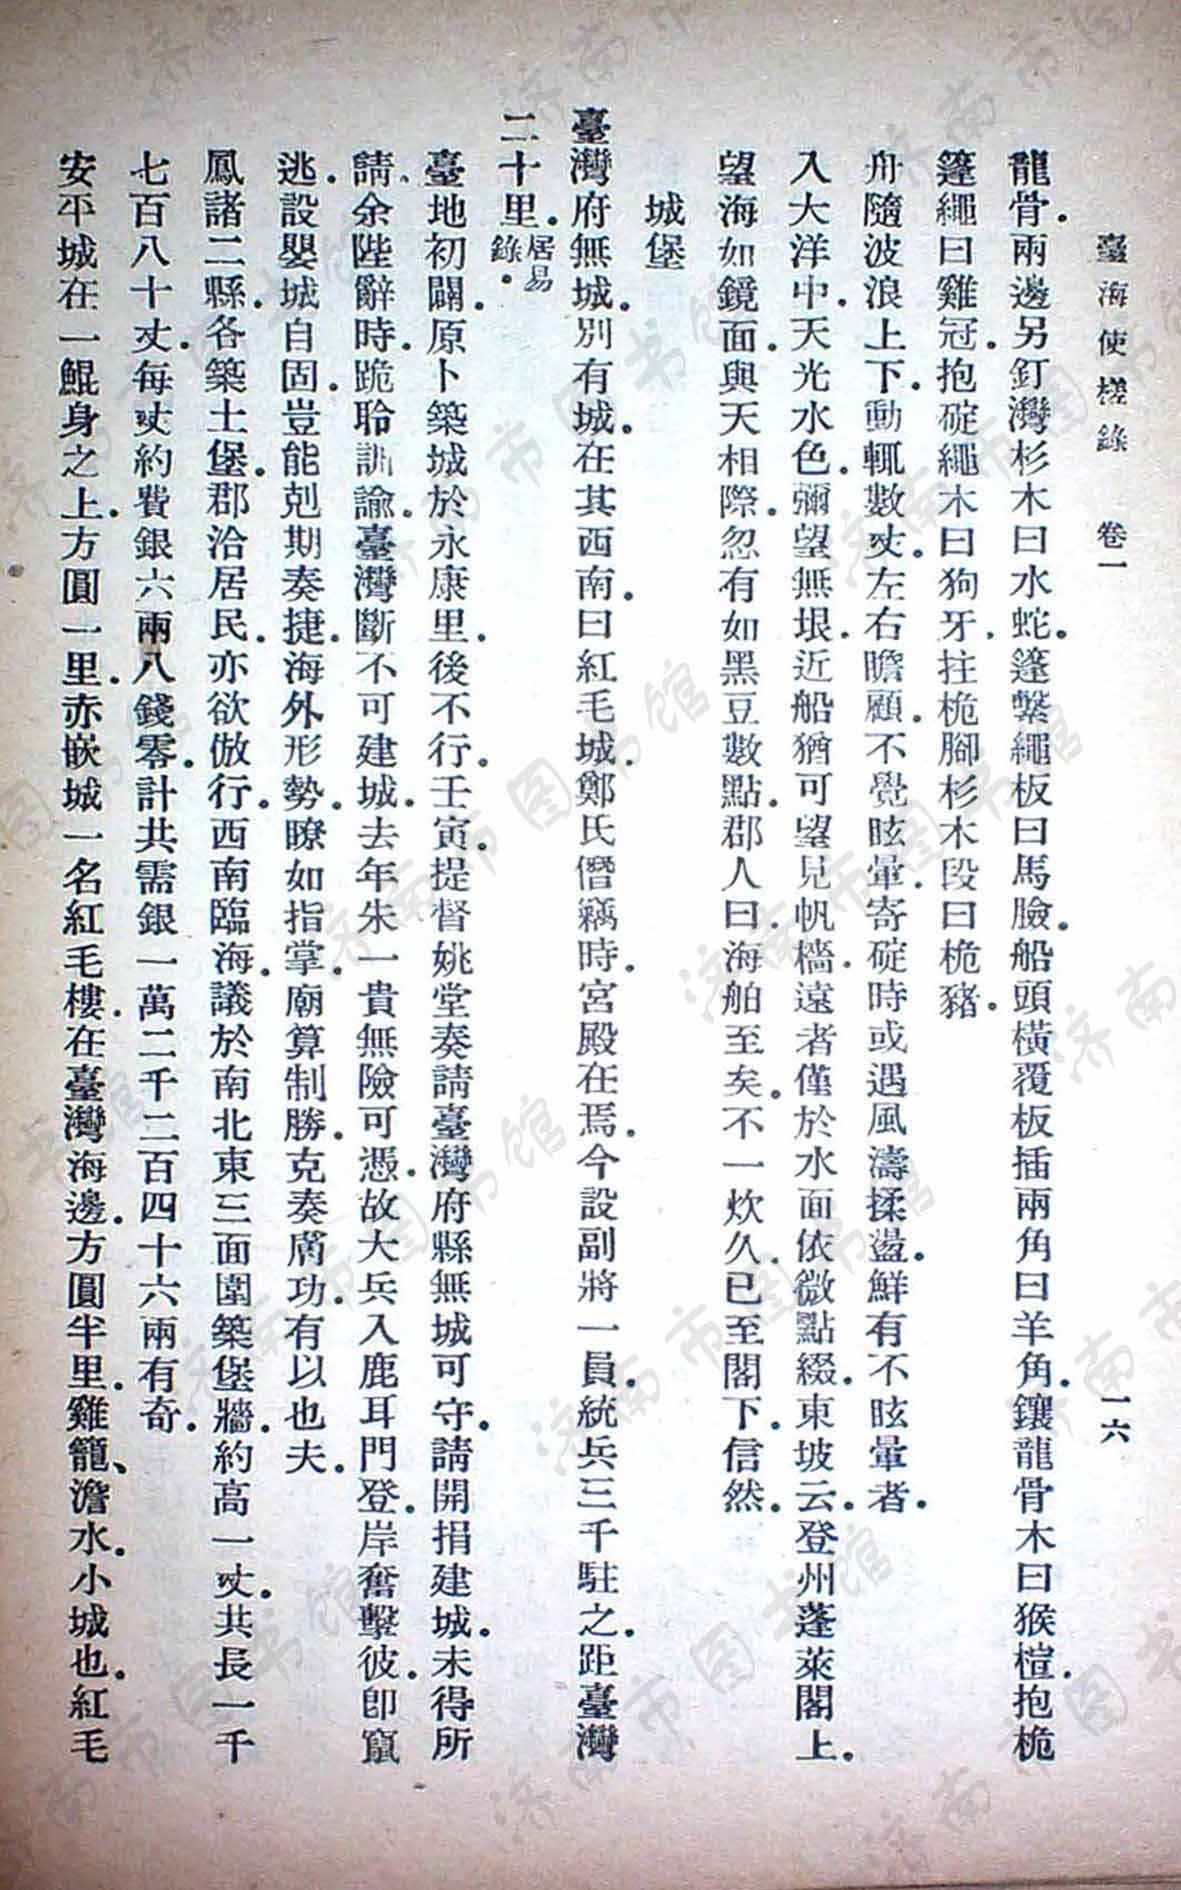 臺海使槎錄　卷一　一六
龍骨。兩邊另釘灣杉木曰水蛇。篷繫繩板曰馬臉。船頭橫覆板插兩角曰羊角。鑲龍骨木曰猴楦。抱桅
篷繩曰雞冠。抱碇繩木曰狗牙。拄桅腳杉木段曰桅豬。
舟隨波浪上下。動輒數丈。左右瞻顧。不覺眩暈。寄碇時或遇風濤揉盪。鮮有不眩暈者。
入大洋中。天光水色。彌望無垠。近船猶可望見帆檣。遠者僅於水面依微點綴。東坡云。登州蓬萊閣上。
望海如鏡面。與天相際。忽有如黑豆數點。郡人曰。海舶至矣。不一炊久。已至閣下。信然。
城堡
臺灣府無城。別有城。在其西南。曰紅毛城。鄭氏僭竊時。宮殿在焉。今設副將一員。統兵三千駐之。距臺灣
二十里。居易錄。
臺地初闢。原卜築城於永康里。後不行。壬寅。提督姚堂奏請臺灣府縣無城可守。請開捐建城。未得所
請。余陛辭時。跪聆訓諭。臺灣斷不可建城。去年朱一貴無險可憑。故大兵入鹿耳門。登岸奮擊。彼卽竄
逃。設嬰城自固。豈能剋期奏捷。海外形勢。瞭如指掌。廟算制勝。克奏膚功。有以也夫。
鳳諸二縣。各築土堡。郡治居民。亦欲倣行。西南臨海。議於南北東三面圍築堡牆。約高一丈。共長一千
七百八十丈。每丈約費銀六兩八錢零。計共需銀一萬二千二百四十六兩有奇。
安平城在一鯤身之上。方圓一里。赤嵌城一名紅毛樓。在臺灣海邊。方圓半里。雞籠、澹水。小城也。紅毛
济南市图书馆